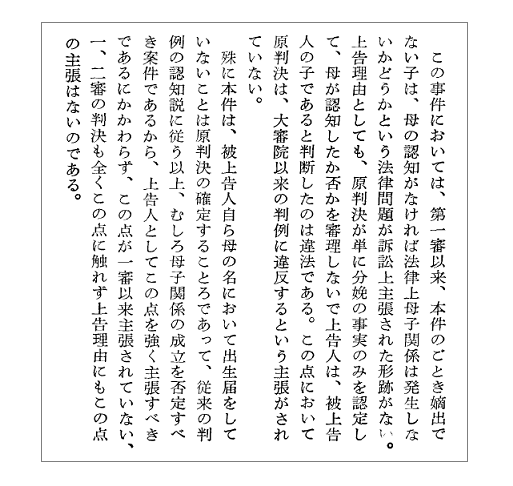 この事件においては、第一審以来、本件のごとき嫡出で
ない子は、母の認知がなければ法律上母子関係は発生しな
いかどうかという法律問題が訴訟上主張された形跡がない。
上告理由としても、原判決が単に分娩の事実のみを認定し
て、母が認知したか否かを審理しないで上告人は、被上告
人の子であると判断したのは違法である。この点において
原判決は、大審院以来の判例に違反するという主張がされ
ていない。
殊に本件は、被上告人自ら母の名において出生届をして
いないことは原判決の確定することろであって、従来の判
例の認知説に従う以上、むしろ母子関係の成立を否定すべ
き案件であるから、上告人としてこの点を強く主張すべき
であるにかかわらず、この点が一審以来主張されていない、
一、二審の判決も全くこの点に触れず上告理由にもこの点
の主張はないのである。